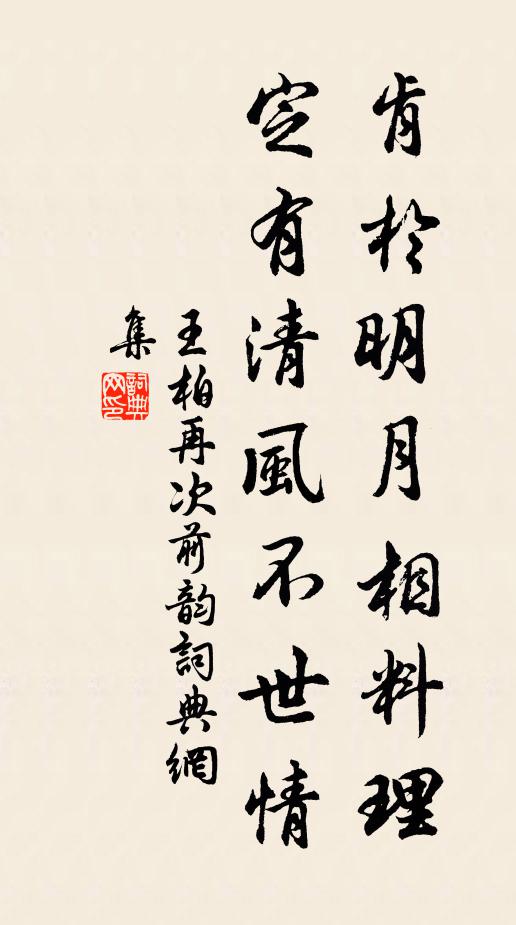 肯於明月相料理
定有清風不世情
王柏再次前韵詞典網
集
詞典網印